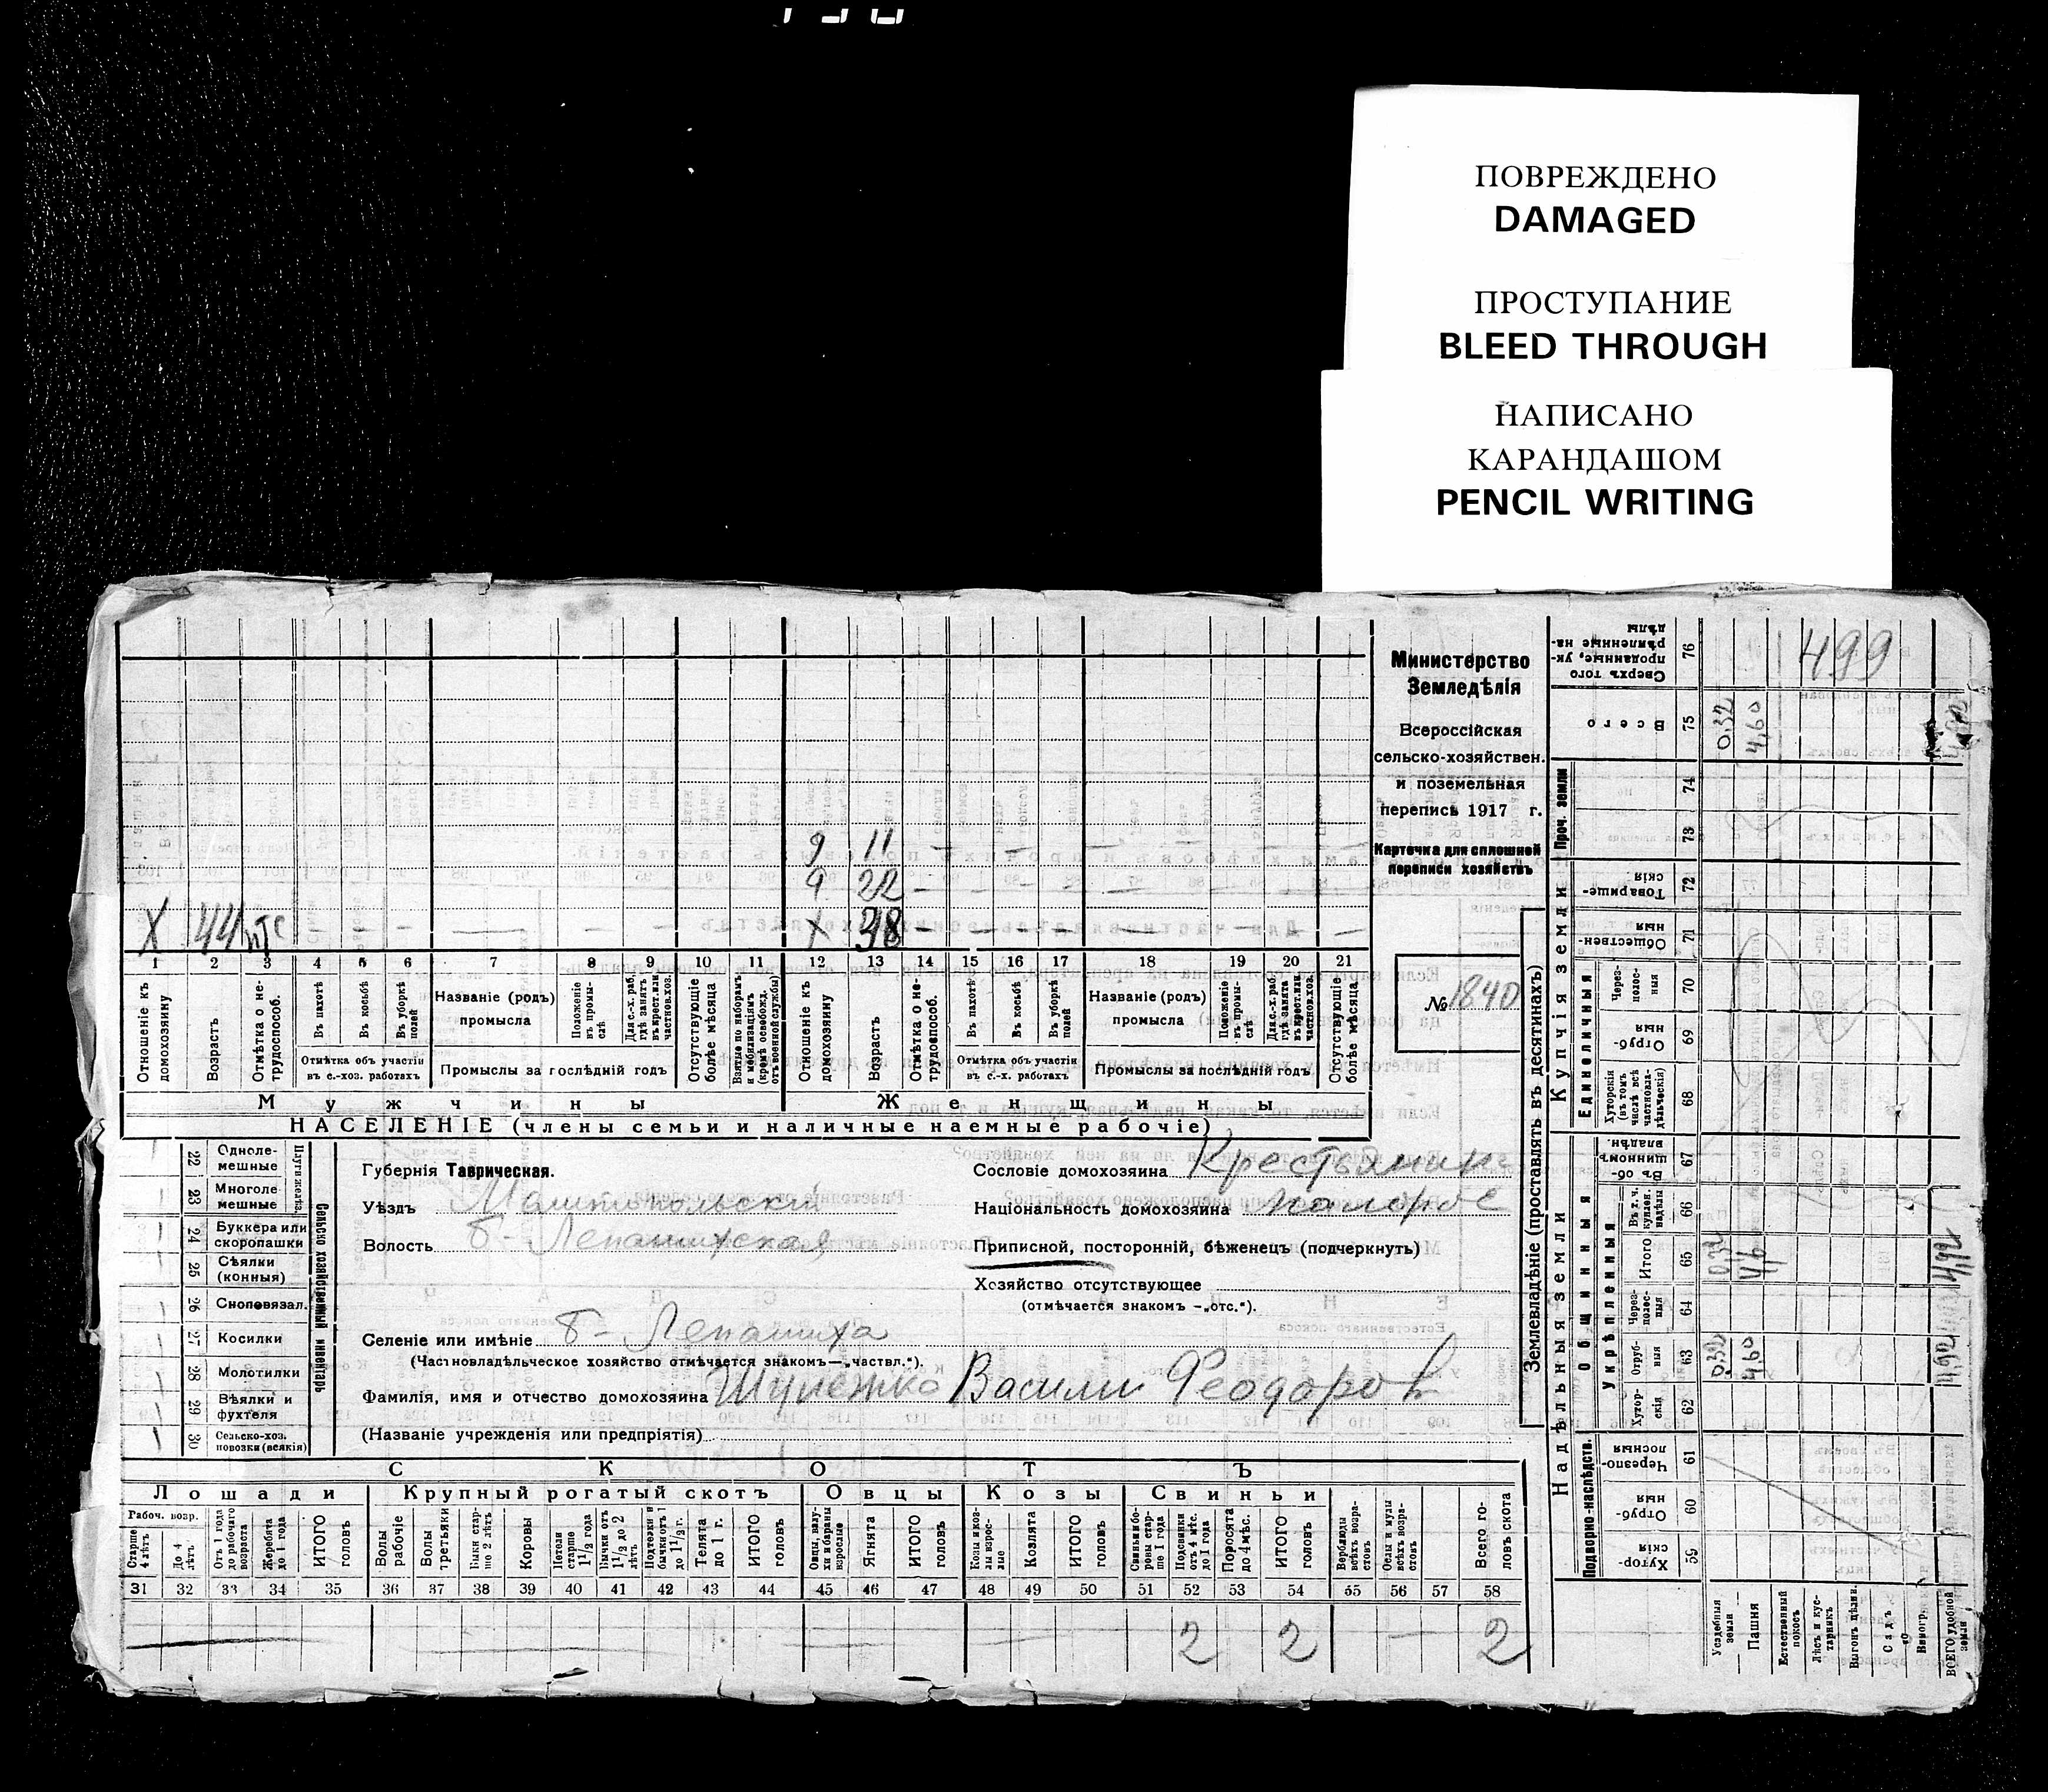 ПОВРЕЖДЕНО
DAMAGED
ПРОСТУПАНИЕ
BLEED THROUGH
НАПИСАНО
КАРАНДАШОМ
PENCIL WRITING
Министерство
Земледѣлія
Всероссійская
сельско-хозяйствен.
и поземельная
перепись 1917 г.
Карточка для сплошной
переписи хозяйствъ
№ 1840
9 11 — — — — — — —
9 22 — — — — — — — —
X 44 — — — — — — X 38 — — — — — — —
1 2 3 4 5 6 7 8 9 10 11 12 13 14 15 16 17 18 19 20 21
Отношеніе къ домохозяину
Возрастъ
Отмѣтка о не-трудоспособ.
Въ пахотѣ
Въ косьбѣ
Въ уборкѣ полей
Отмѣтка объ участіи въ с.-хоз. работахъ
Названіе (родъ) промысла
Положеніе въ промы-слѣ
Для с.-х. раб. гдѣ занятъ въ крест. или частнов. хоз.
Промыслы за послѣдній годъ
Отсутствующіе болѣе мѣсяца
Взятые по наборамъ и мобилизаціямъ (кромѣ освобожд. отъ военной службы)
Отношеніе къ домохозяину
Возрастъ
Отмѣтка о не-трудоспособ.
Въ пахотѣ
Въ косьбѣ
Въ уборкѣ полей
Отмѣтка объ участіи въ с.-х. работахъ
Названіе (родъ) промысла
Положеніе въ промы-слѣ
Для с.-х. раб. гдѣ занята въ крест. или частнов. хоз.
Промыслы за послѣдній годъ
Отсутствующіе болѣе мѣсяца
Мужчины Женщины
НАСЕЛЕНІЕ (члены семьи и наличные наемные рабочіе)
22 Однолемешные
23 Многолемешные
24 Буккера или скоропашки
25 Сѣялки (конныя)
26 Сноповязал.
27 Косилки
28 Молотилки
29 Вѣялки и фухтеля
30 Сельско-хоз. повозки (всякія)
Плуги желѣз.
Сельско хозяйственный инвентарь
Губернія Таврическая.
Уѣздъ Мелитопольскій
Волость Б-Лепатихская
Селеніе или имѣніе Б-Лепатиха
(Частновладѣльческое хозяйство отмѣчается знакомъ—„частвл.“).
Фамилія, имя и отчество домохозяина Василий Феодоров
(Названіе учрежденія или предпріятія)
Сословіе домохозяина Крестьянинъ
Національность домохозяина малорос
Приписной, посторонній, бѣженецъ (подчеркнуть)
Хозяйство отсутствующее
(отмѣчается знакомъ —„отс.“).
СКОТЪ
Лошади Крупный рогатый скотъ Овцы Козы Свиньи
Рабоч. возр.
Старше 4 лѣтъ
До 4 лѣтъ
Отъ 1 года до рабочаго возраста
Жеребята до 1 года
ИТОГО головъ
Волы рабочіе
Волы третьяки
Быки стар-ше 2 лѣтъ
Коровы
Нетели старше 1½ года
Бычки отъ 1½ до 2 лѣтъ
Подтелки и бычки отъ 1 до 1½ г.
Телята до 1 г.
ИТОГО головъ
Овцы, валу-хи и бараны взрослые
Ягнята
ИТОГО головъ
Козы и коз-лы взрос-лые
Козлята
ИТОГО головъ
Свиньи и бо-ровы стар-ше 1 года
Подсвинки отъ 4 мѣс. до 1 года
Поросята до 4 мѣс.
ИТОГО головъ
Верблюды всѣхъ возра-стовъ
Ослы и мулы всѣхъ возра-стовъ
Всего го-ловъ скота
31 32 33 34 35 36 37 38 39 40 41 42 43 44 45 46 47 48 49 50 51 52 53 54 55 56 57 58
2 2 — 2
Землевладѣніе (проставлять въ десятинахъ)
Надѣльныя земли Купчія земли
Подворно-наслѣдств. Общинныя Единоличныя Проч. земли
Укрѣпленныя
Хутор-скія 59
Отруб-ныя 60
Черезпо-лосныя 61
Хутор-скія 62
Отруб-ныя 63 0,32 4,60 4,92
Через-полос-ныя 64
Итого 65 0,32 4,6 4,92
Въ т. ч. куплен. надѣлы 66
Въ об-щинномъ владѣн. 67
Хуторскія (въ томъ числѣ всѣ частновла-дѣльческія) 68
Отруб-ныя 69
Через-полос-ныя 70
Обществен-ныя 71
Товарище-скія 72
73
74
Всего 75 0,32 4,60 4,92
Сверхъ того проданные, ук-рѣпленные на-дѣлы 76
499
Усадебныя земли
Пашня
Естественный покосъ
Лѣсъ и кус-тарникъ
Выгонъ цѣлин.
Садъ
Виногр.
ВСЕГО удобной земли